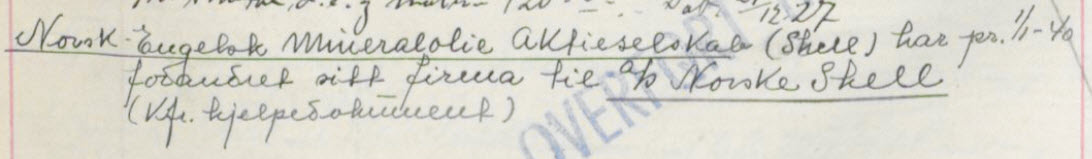 12.27
Norsk-Engelsk Mineralolie Aktieselskab (Shell) har pr. 1/1-40
forandret sitt firma til A/S Norske Shell
(Kfr. hjelpedokument)
OVERFØRT